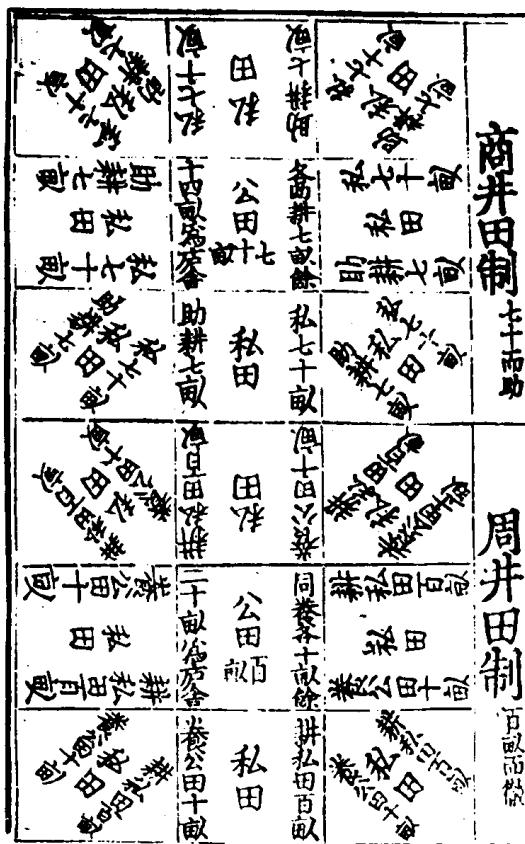 商井田制
七十而助
私七十畝
私田
助耕七畝
私七十畝
私田
助耕七畝
私七十畝
私田
助耕七畝
私七十畝
私田
助耕七畝
各助耕七畝餘
公田
七十畝
十四畝為廬舍
私七十畝
私田
助耕七畝
私七十畝
私田
助耕七畝
私七十畝
私田
助耕七畝
私七十畝
私田
助耕七畝
周井田制
百畝而徹
耕私田百畝
私田
養公田十畝
耕私田百畝
私田
養公田十畝
耕私田百畝
私田
養公田十畝
耕私田百畝
私田
養公田十畝
同養各十畝餘
公田
百畝
二十畝為廬舍
耕私田百畝
私田
養公田十畝
耕私田百畝
私田
養公田十畝
耕私田百畝
私田
養公田十畝
耕私田百畝
私田
養公田十畝